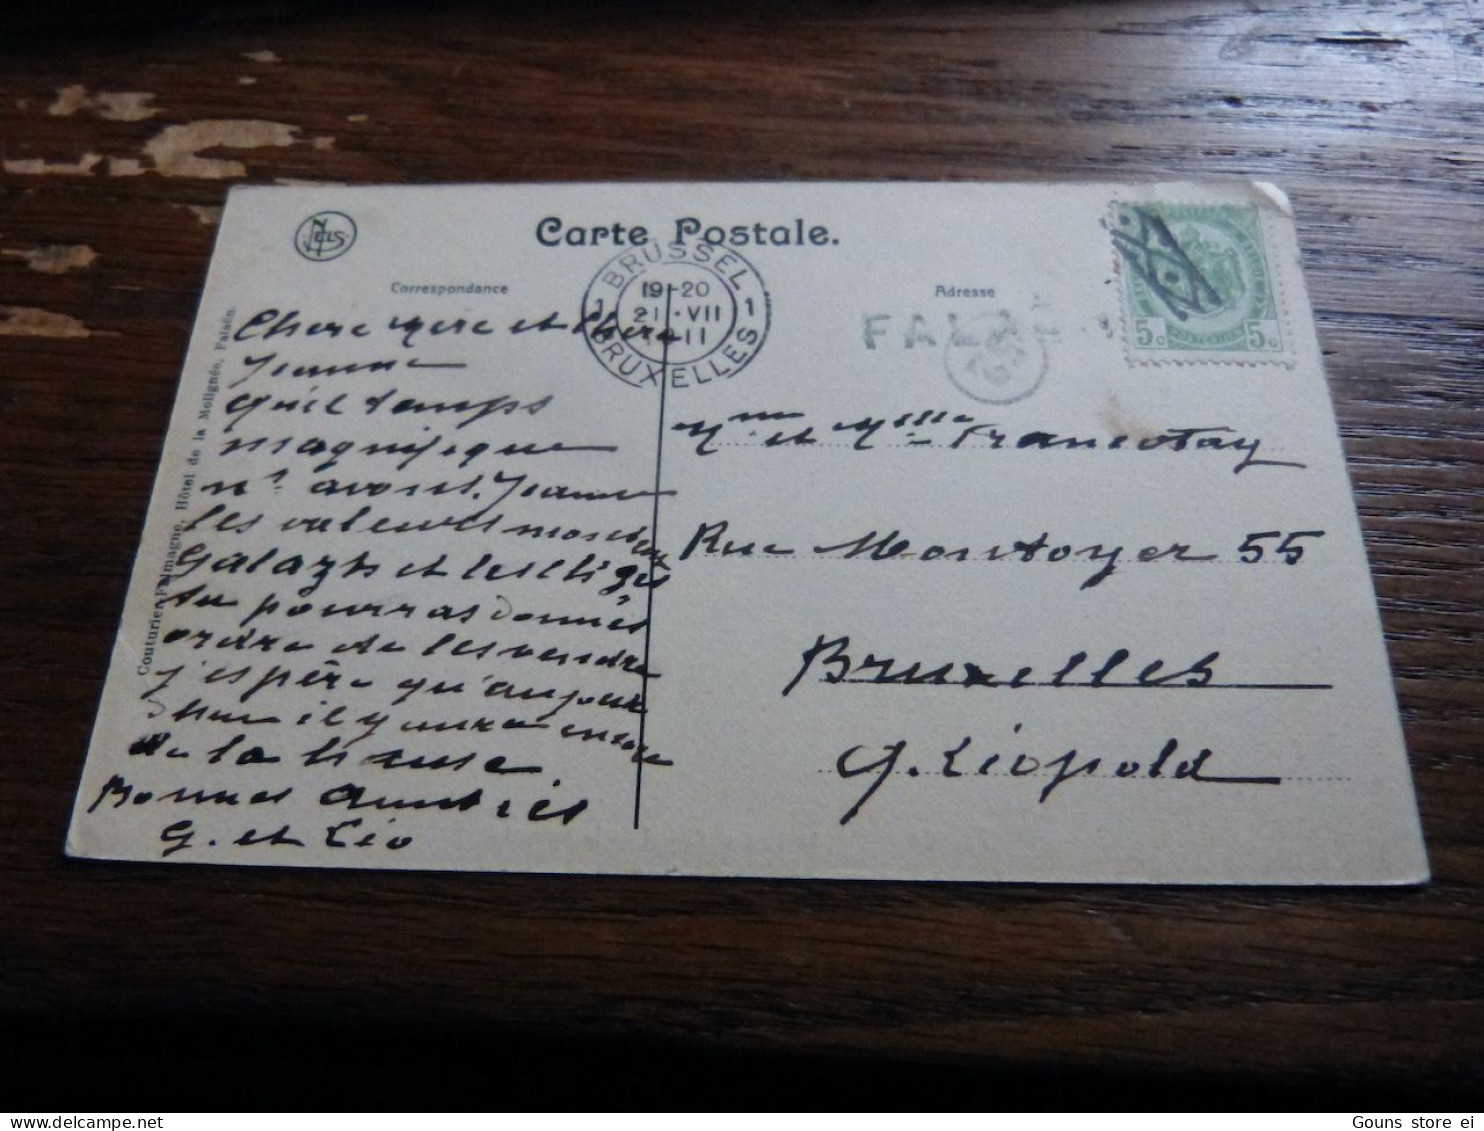 NELS
Carte Postale.
Correspondance
Adresse
BRUSSEL
19-20
1 21·VII 1
11
BRUXELLES
FALAEN
5c 5c
Couturier-Falmagne, Hôtel de la Molignée, Falaën.
Chère mère et Chère
Jeanne
Quel temps
magnifique
ns avons. Jeanne
les valeurs
et les
tu pourras donner
ordre de les vendre
j'espère qu'aujour
d'hui il y aura encore
de la hausse.
Bonnes amitiés
G. et Léo
Mme et Melle Francotay
Rue Montoyer 55
Bruxelles
Q. Léopold
Gouns store ei